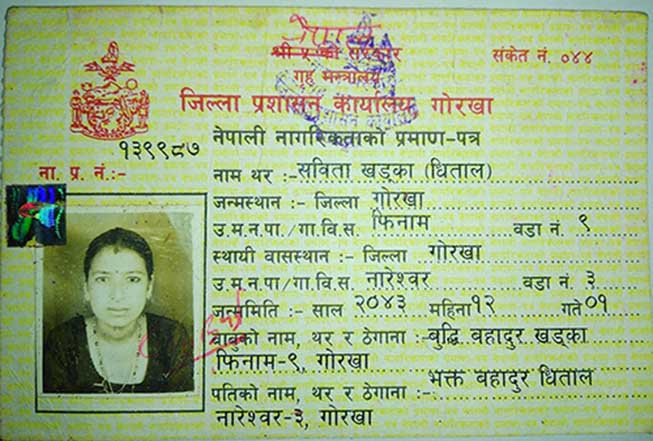 नेपाल
श्री ५ को सरकार
संकेत नं. ०४४
गृह मन्त्रालय
जिल्ला प्रशासन कार्यालय, गोरखा
१३९९८७
नेपाली नागरिकताको प्रमाण-पत्र
ना. प्र. नं.:-
नाम थर :- सविता खड्का (धिताल)
जन्मस्थान :- जिल्ला गोरखा
उ.म.न.पा./गा.वि.स. फिनाम वडा नं. ९
स्थायी वासस्थान :- जिल्ला गोरखा
उ.म.न.पा/गा.वि.स. नारेश्वर वडा नं. ३
जन्ममिति :- साल २०४३ महिना १२ गते ०१
बाबुको नाम, थर र ठेगाना :- बुद्धि वहादुर खड्का
फिनाम-९, गोरखा
पतिको नाम, थर र ठेगाना :- भक्त वहादुर धिताल
नारेश्वर-३, गोरखा